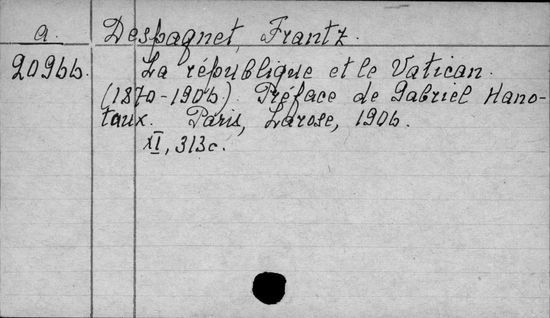 a. Despagnet, Frantz.
2096b. La république et le Vatican.
(1870-1906). Préface de Gabriel Hano-
taux. Paris, Larose, 1906.
XI, 313c.